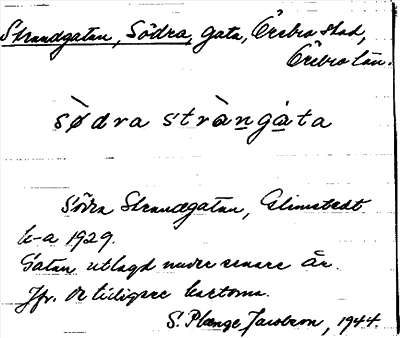 Strandgatan, Södra, gata, Örebro stad,
Örebro län.
sø̀dra stràng̲å̲ta
Södra Strandgatan, Glimstedt
k-a 1929.
Gatan utlagd under senare år.
Jfr. de tidigare kartorna.
S. Plænge Jacobson, 1944.